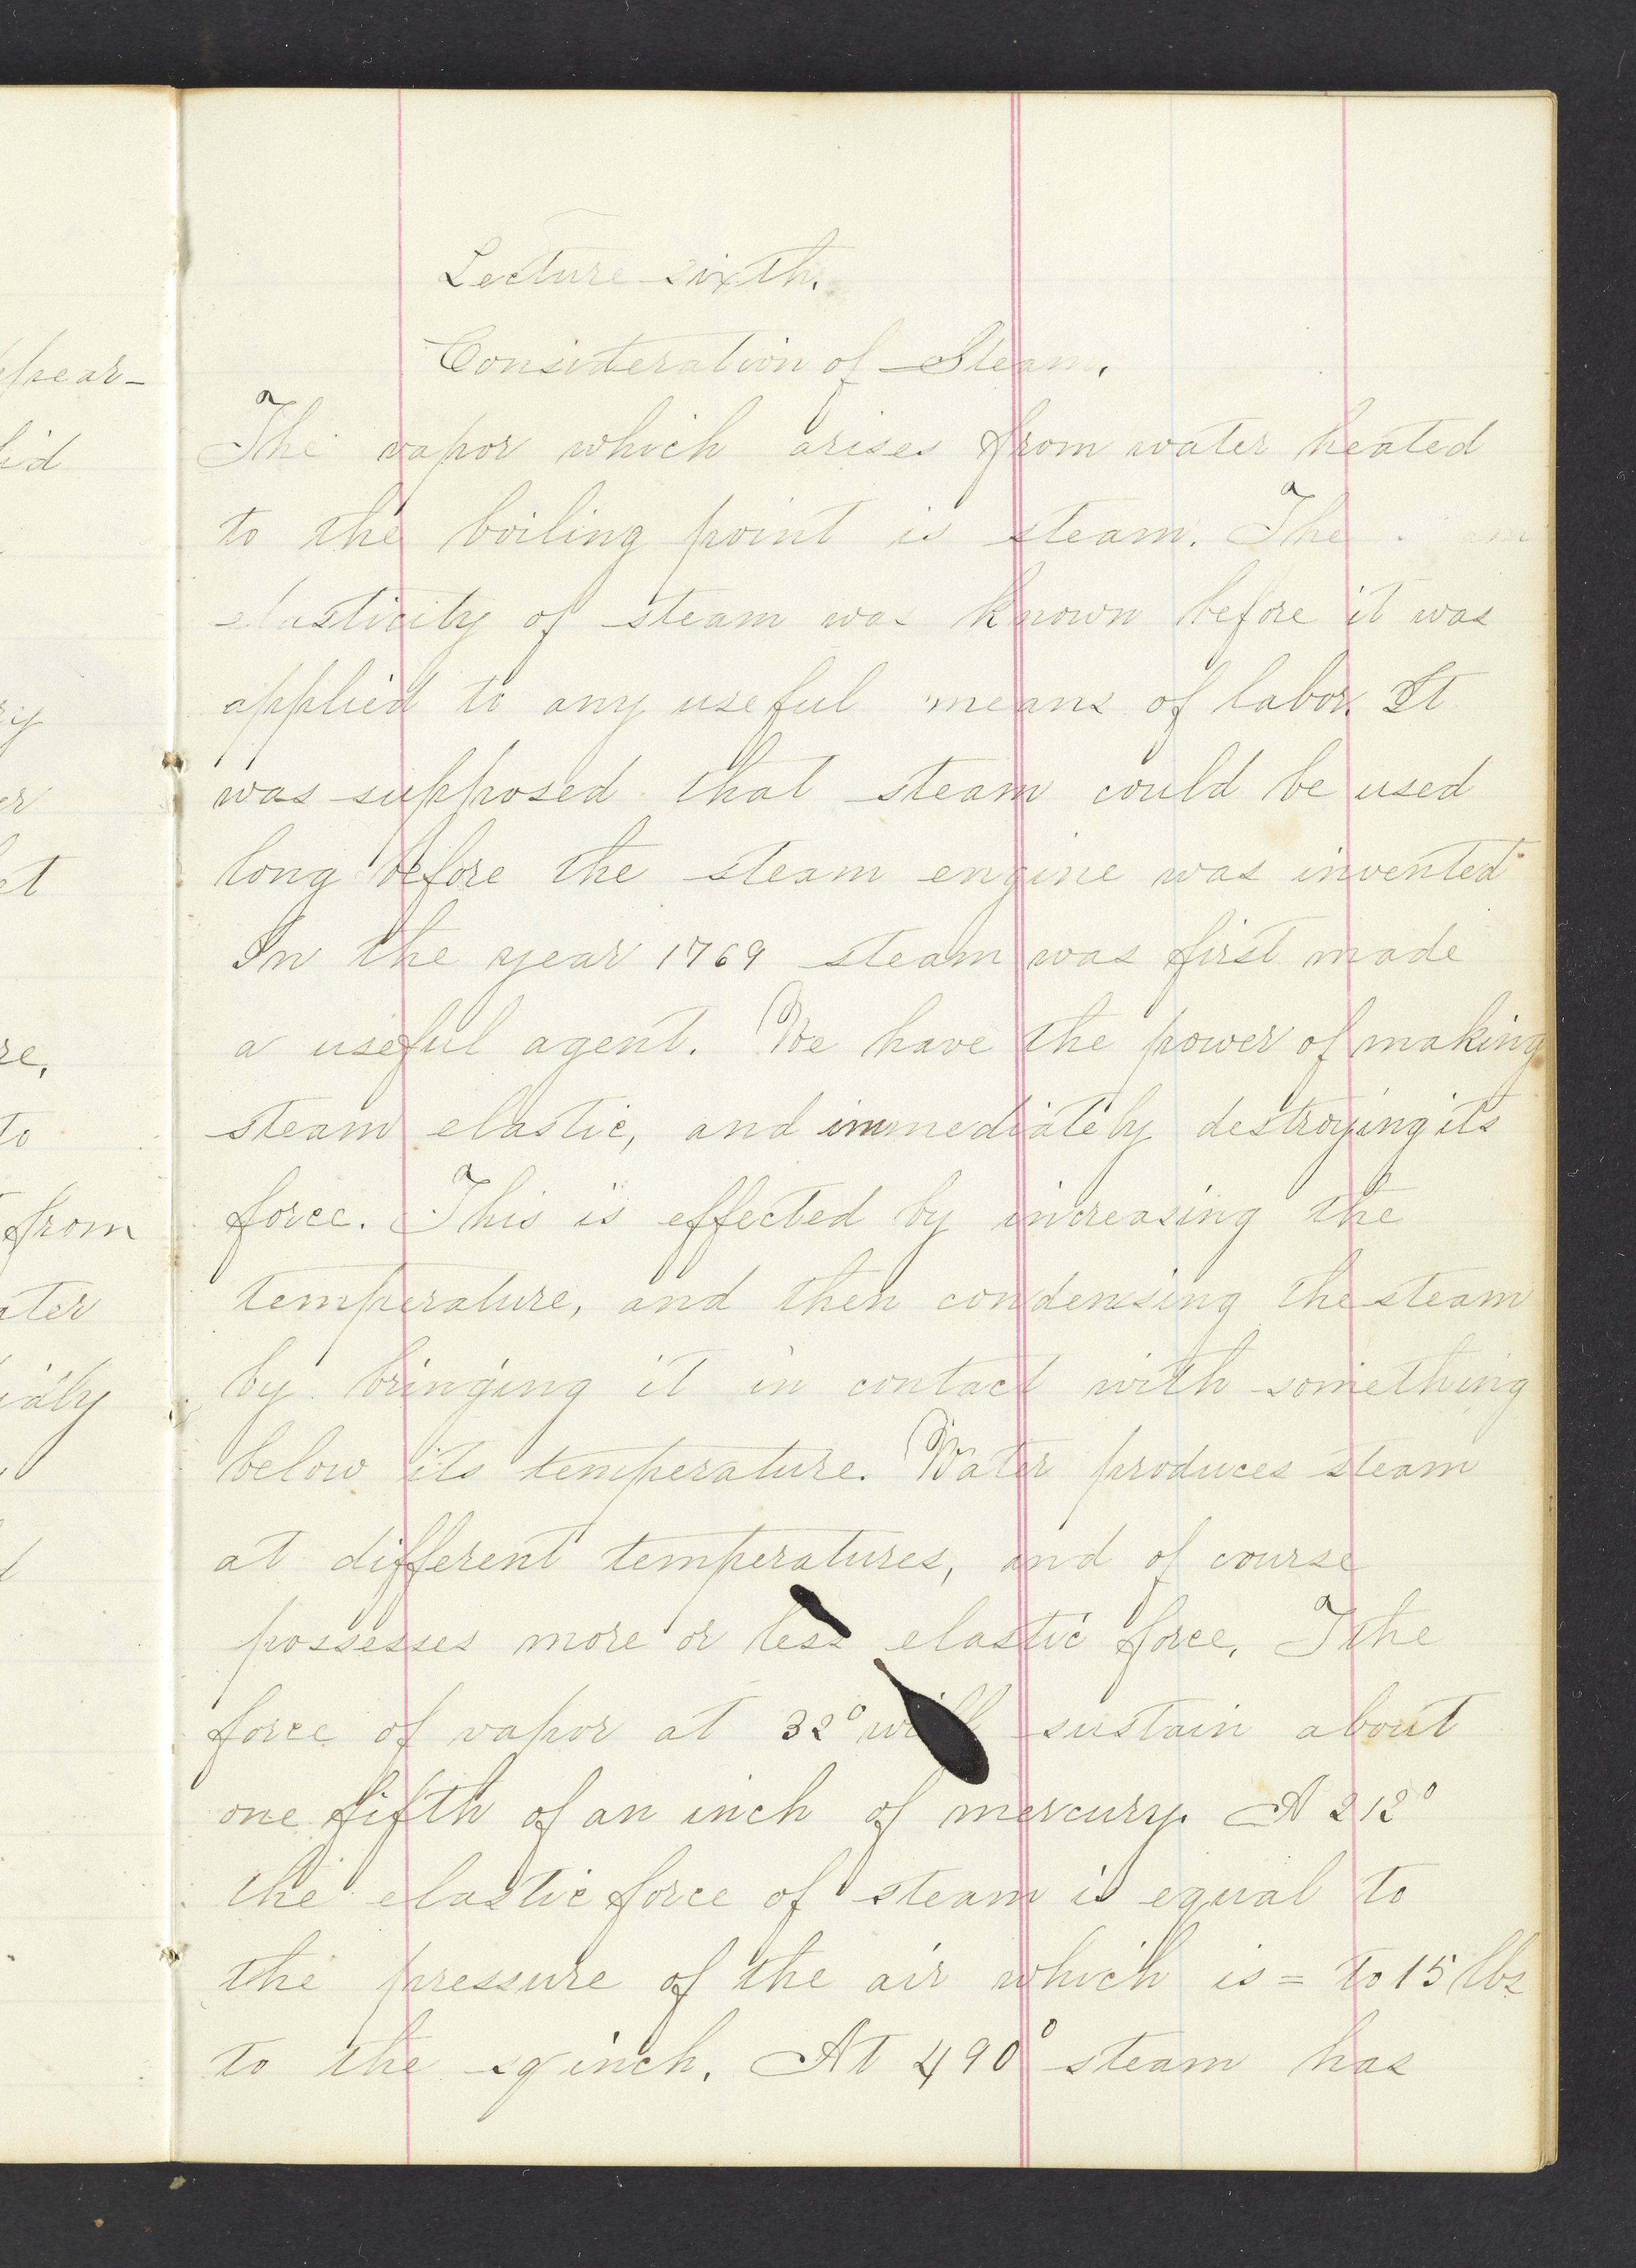 Lecture sixth.
Consideration of Steam.
The vapor which arises from water heated
to the boiling point is steam. The
elasticity of steam was known before it was
applied to any useful means of labor. It
was supposed that steam could be used
long before the steam engine was invented
In the year 1769 steam was first made
a useful agent. We have the power of making
steam elastic, and immediately destroying its
force. This is effected by increasing the
temperature, and then condensing the steam
by bringing it in contact with something
below its temperature. Water produces steam
at different temperatures, and of course
possesses more or less elastic force. The
force of vapor at 32° will sustain about
one fifth of an inch of mercury. A 212°
the elastic force of steam is equal to
the pressure of the air which is = to 15 lbs
to the sq inch. At 490° steam has
pear-
id
ry
er
et
re,
to
from
ater